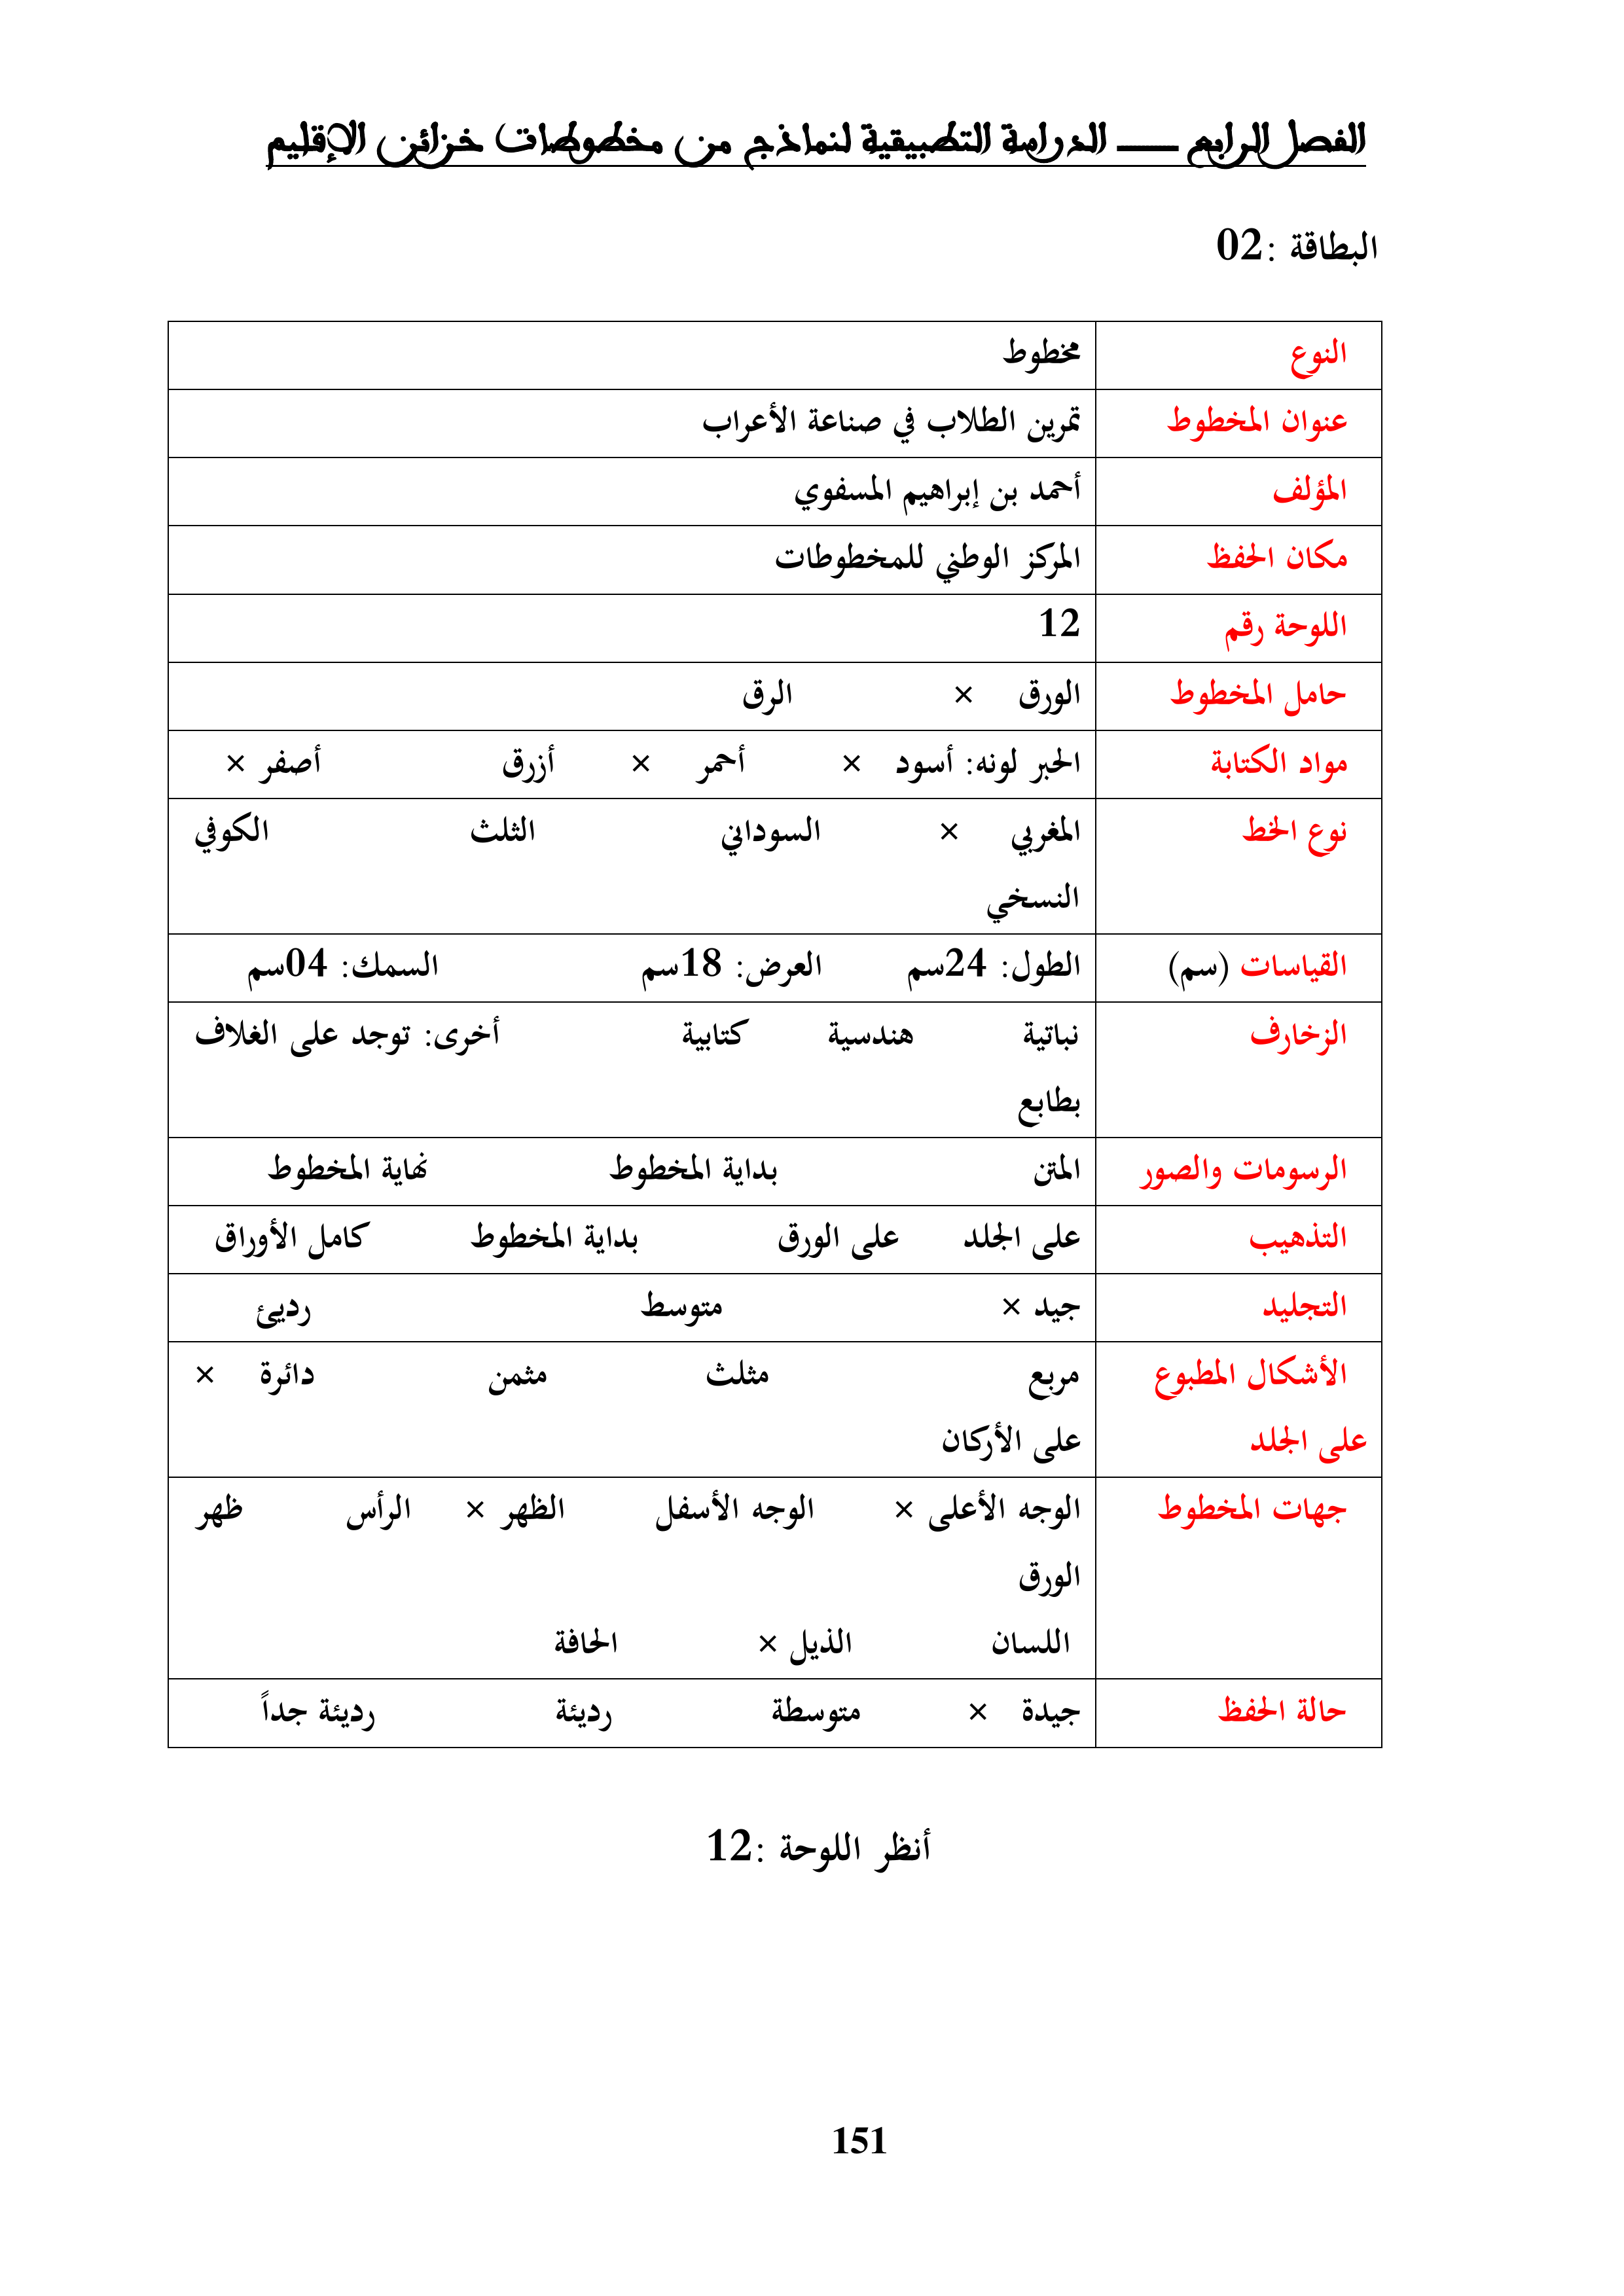 الفصل الرابع ـــــــ الدراسة التطبيقية لنماذج من مخطوطات خزائن الإقليم
البطاقة :02
النوع مخطوط
عنوان المخطوط تمرين الطلاب في صناعة الأعراب
المؤلف أحمد بن إبراهيم المسفوي
مكان الحفظ المركز الوطني للمخطوطات
اللوحة رقم 12
حامل المخطوط الورق × الرق
مواد الكتابة الحبر لونه: أسود × أحمر × أزرق أصفر ×
نوع الخط المغربي × السوداني الثلث الكوفي
النسخي
القياسات (سم) الطول: 24سم العرض: 18سم السمك: 04سم
الزخارف نباتية هندسية كتابية أخرى: توجد على الغلاف
بطابع
الرسومات والصور المتن بداية المخطوط نهاية المخطوط
التذهيب على الجلد على الورق بداية المخطوط كامل الأوراق
التجليد جيد × متوسط رديئ
الأشكال المطبوع مربع مثلث مثمن دائرة ×
على الجلد على الأركان
جهات المخطوط الوجه الأعلى × الوجه الأسفل الظهر × الرأس ظهر
الورق
اللسان الذيل × الحافة
حالة الحفظ جيدة × متوسطة رديئة رديئة جداً
أنظر اللوحة :12
151